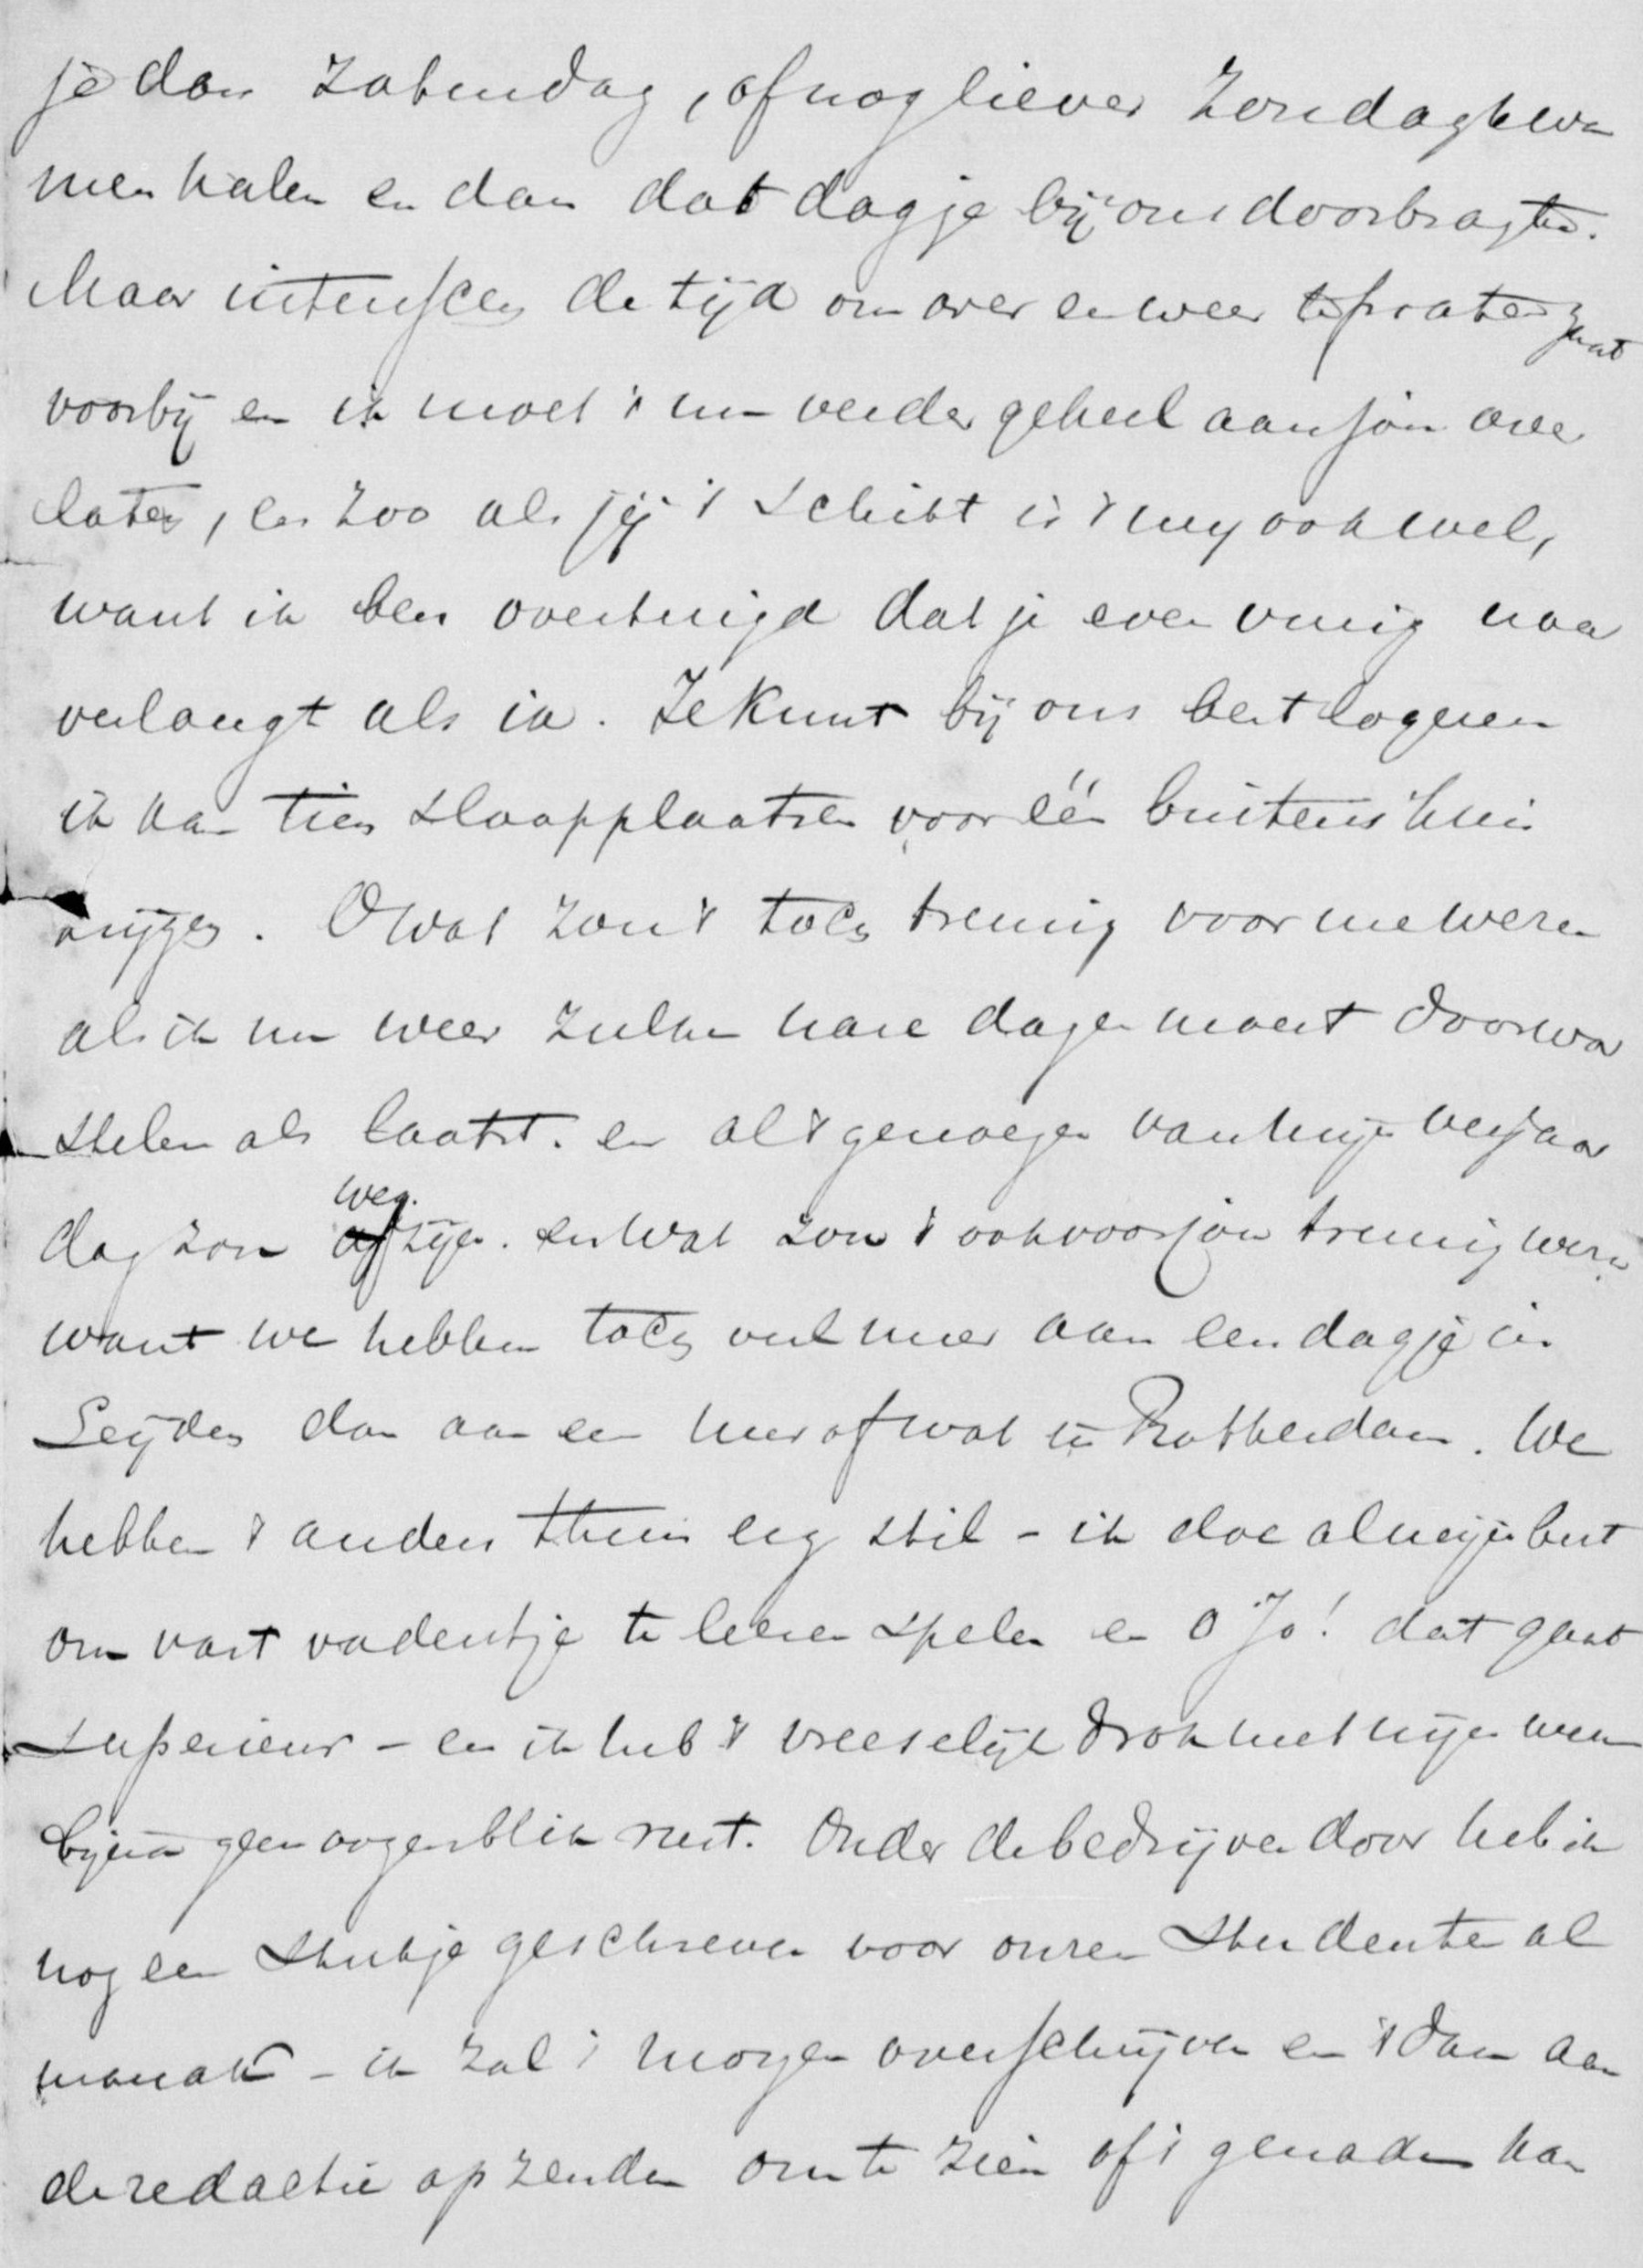 je dan Zatendag, of nog liever Zondag kwa
men halen en dan dat dagje bij ons doorbragten.
Maar intusschen de tijd om over en weer te praten gaat
voorbij en ik moet 't nu verder geheel aan jou over
laten, en zoo als jij 't schikt is 't my ook wel,
want ik ben overtuigd dat je even vurig naar
verlangt als ik. Je kunt bij ons best logeren
ik kan tien slaapplaatsen voor één buitens'huis
krijgen. O wat zou 't toch treurig voor me wezen
als ik nu weer zulke nare dagen moest doorwor
stelen als laatst. en al 't genoegen van mijn verjaar
dag zou weg zijn. en wat zou 't ook voor jou treurig wezen
want we hebben toch veel meer aan een dagje in
Leijden dan aan een uur of wat in Rotterdam. We
hebben 't anders thuis erg stil - ik doe al mijn best
om vast vadertje te leeren spelen en o Jo! dat gaat
superieur - en ik heb 't vreeselijk drok met mijn werk
bijna geen oogenblik rust. Onder de bedrijven door heb ik
nog een stukje geschreven voor onzen Studenten al
manak - ik zal 't morgen overschrijven en 't dan aan
de redactie opzenden om te zien of 't genade kan